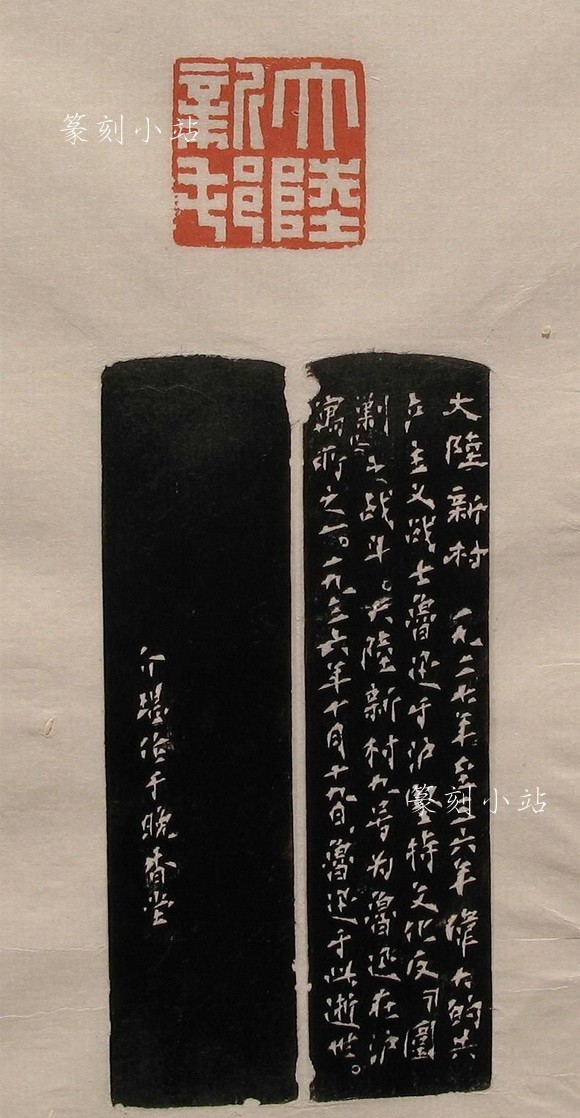 篆刻小站
大陸
新邨
大陸新村 一九二七年至三六年偉大的共
产主义战士魯迅于沪坚持文化反“圍
剿”之战斗。大陸新村九号为魯迅在沪
寓所之一。一九三六年十月十九日,魯迅于此逝世。
介堪治于晚香堂
篆刻小站